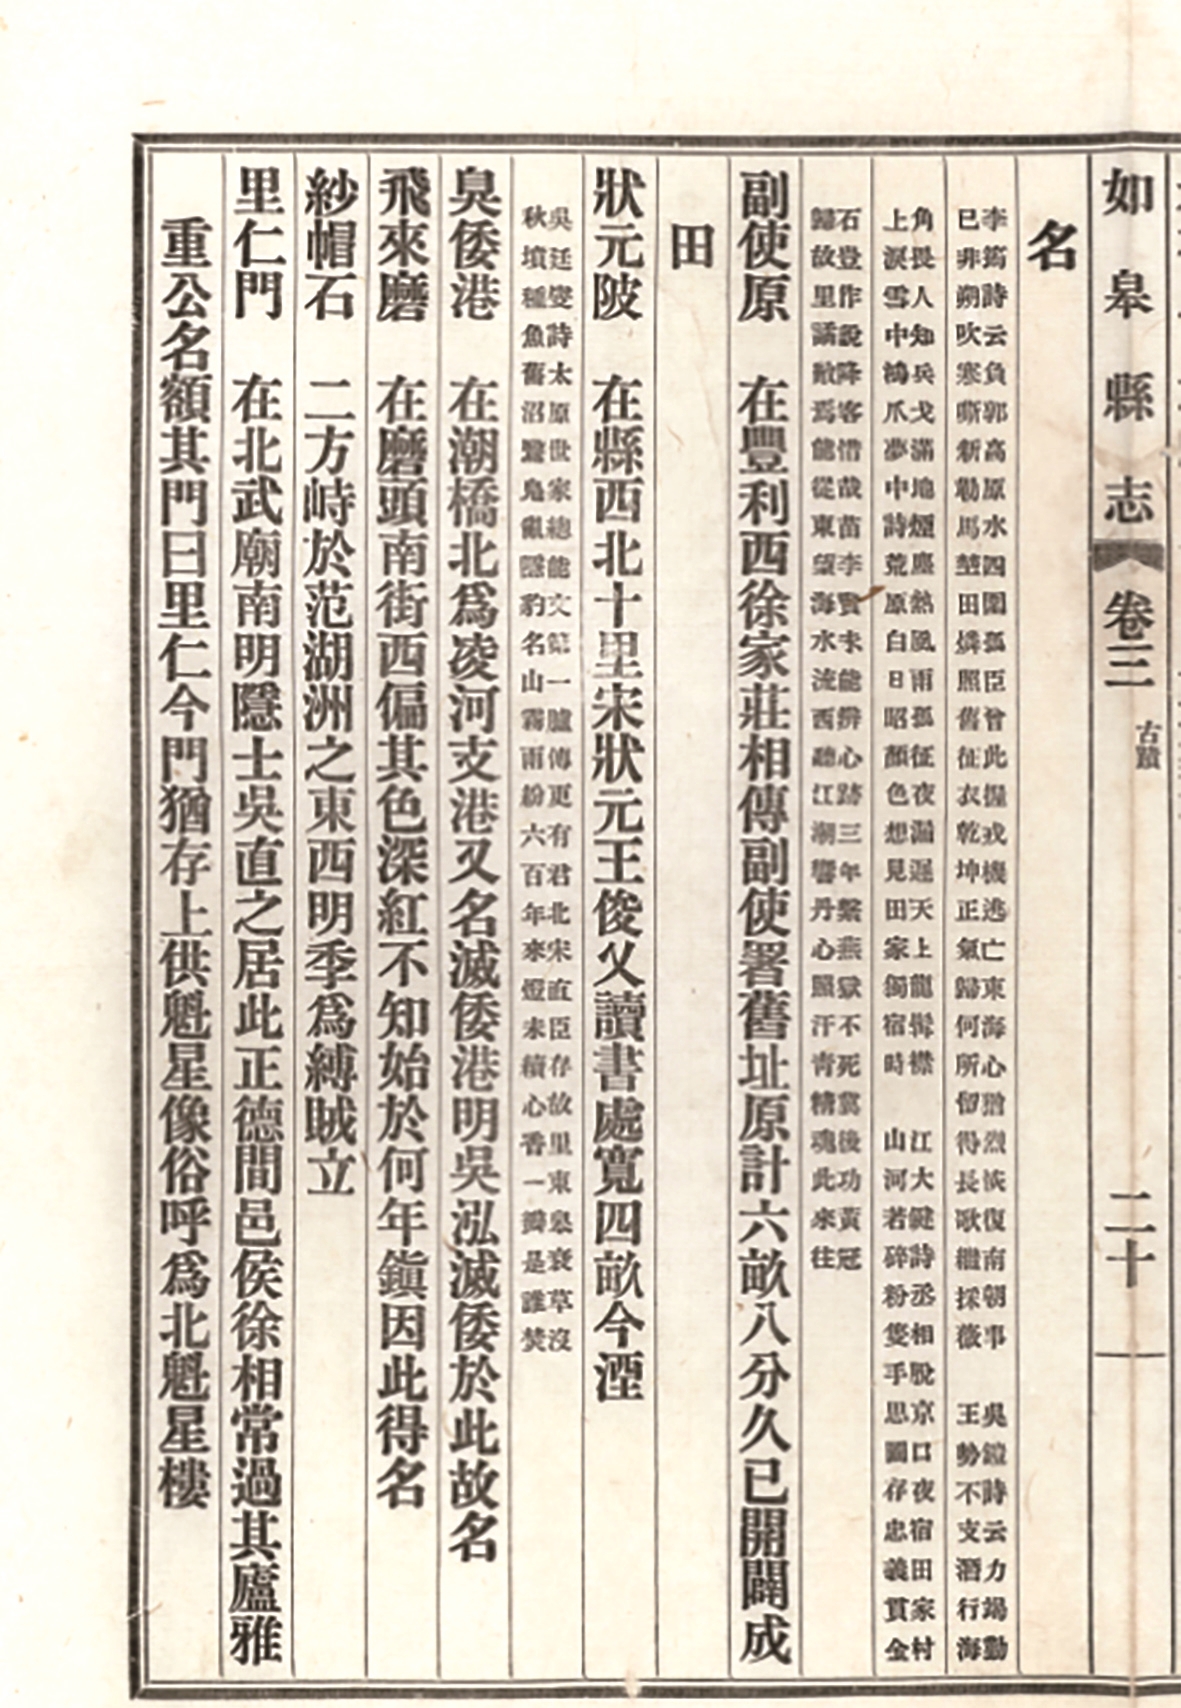 如皋縣志 卷三 古蹟 二十一
名
李筠詩云負郭高原水四圍孤臣曾此握戎機逃亡東海心猶烈恢復南朝事
已非朔吹寒嘶新勒馬墓田燐照舊征衣乾坤正氣歸何所留得長歌繼採薇
吳鎧詩云力竭勤
王勢不支潛行海
角畏人知兵戈滿地煙塵熱風雨孤征夜漏遲天上龍髯襟
上淚雪中鴻爪夢中詩荒原白日昭顏色想見田家獨宿時
江大健詩丞相脫京口夜宿田家村
山河若碎粉隻手思圖存忠義貫金
石豈作說降客惜哉苗李賢未能辨心跡三年繫燕獄不死冀後功黃冠
歸故里話敵焉能從東望海水流西聽江潮響丹心照汗靑精魂此來往
副使原 在豐利西徐家莊相傳副使署舊址原計六畝八分久已開闢成
田
狀元陂 在縣西北十里宋狀元王俊乂讀書處寬四畝今湮
吳廷燮詩太原世家總能文第一臚傳更有君北宋直臣存故里東皋衰草沒
秋墳種魚舊沼鷖鳧亂隱豹名山霧雨紛六百年來燈未續心香一瓣是誰焚
臭倭港 在潮橋北爲凌河支港又名滅倭港明吳泓滅倭於此故名
飛來磨 在磨頭南街西偏其色深紅不知始於何年鎮因此得名
紗帽石 二方峙於范湖洲之東西明季爲縛賊立
里仁門 在北武廟南明隱士吳直之居此正德間邑侯徐相常過其廬雅
重公名額其門曰里仁今門猶存上供魁星像俗呼爲北魁星樓